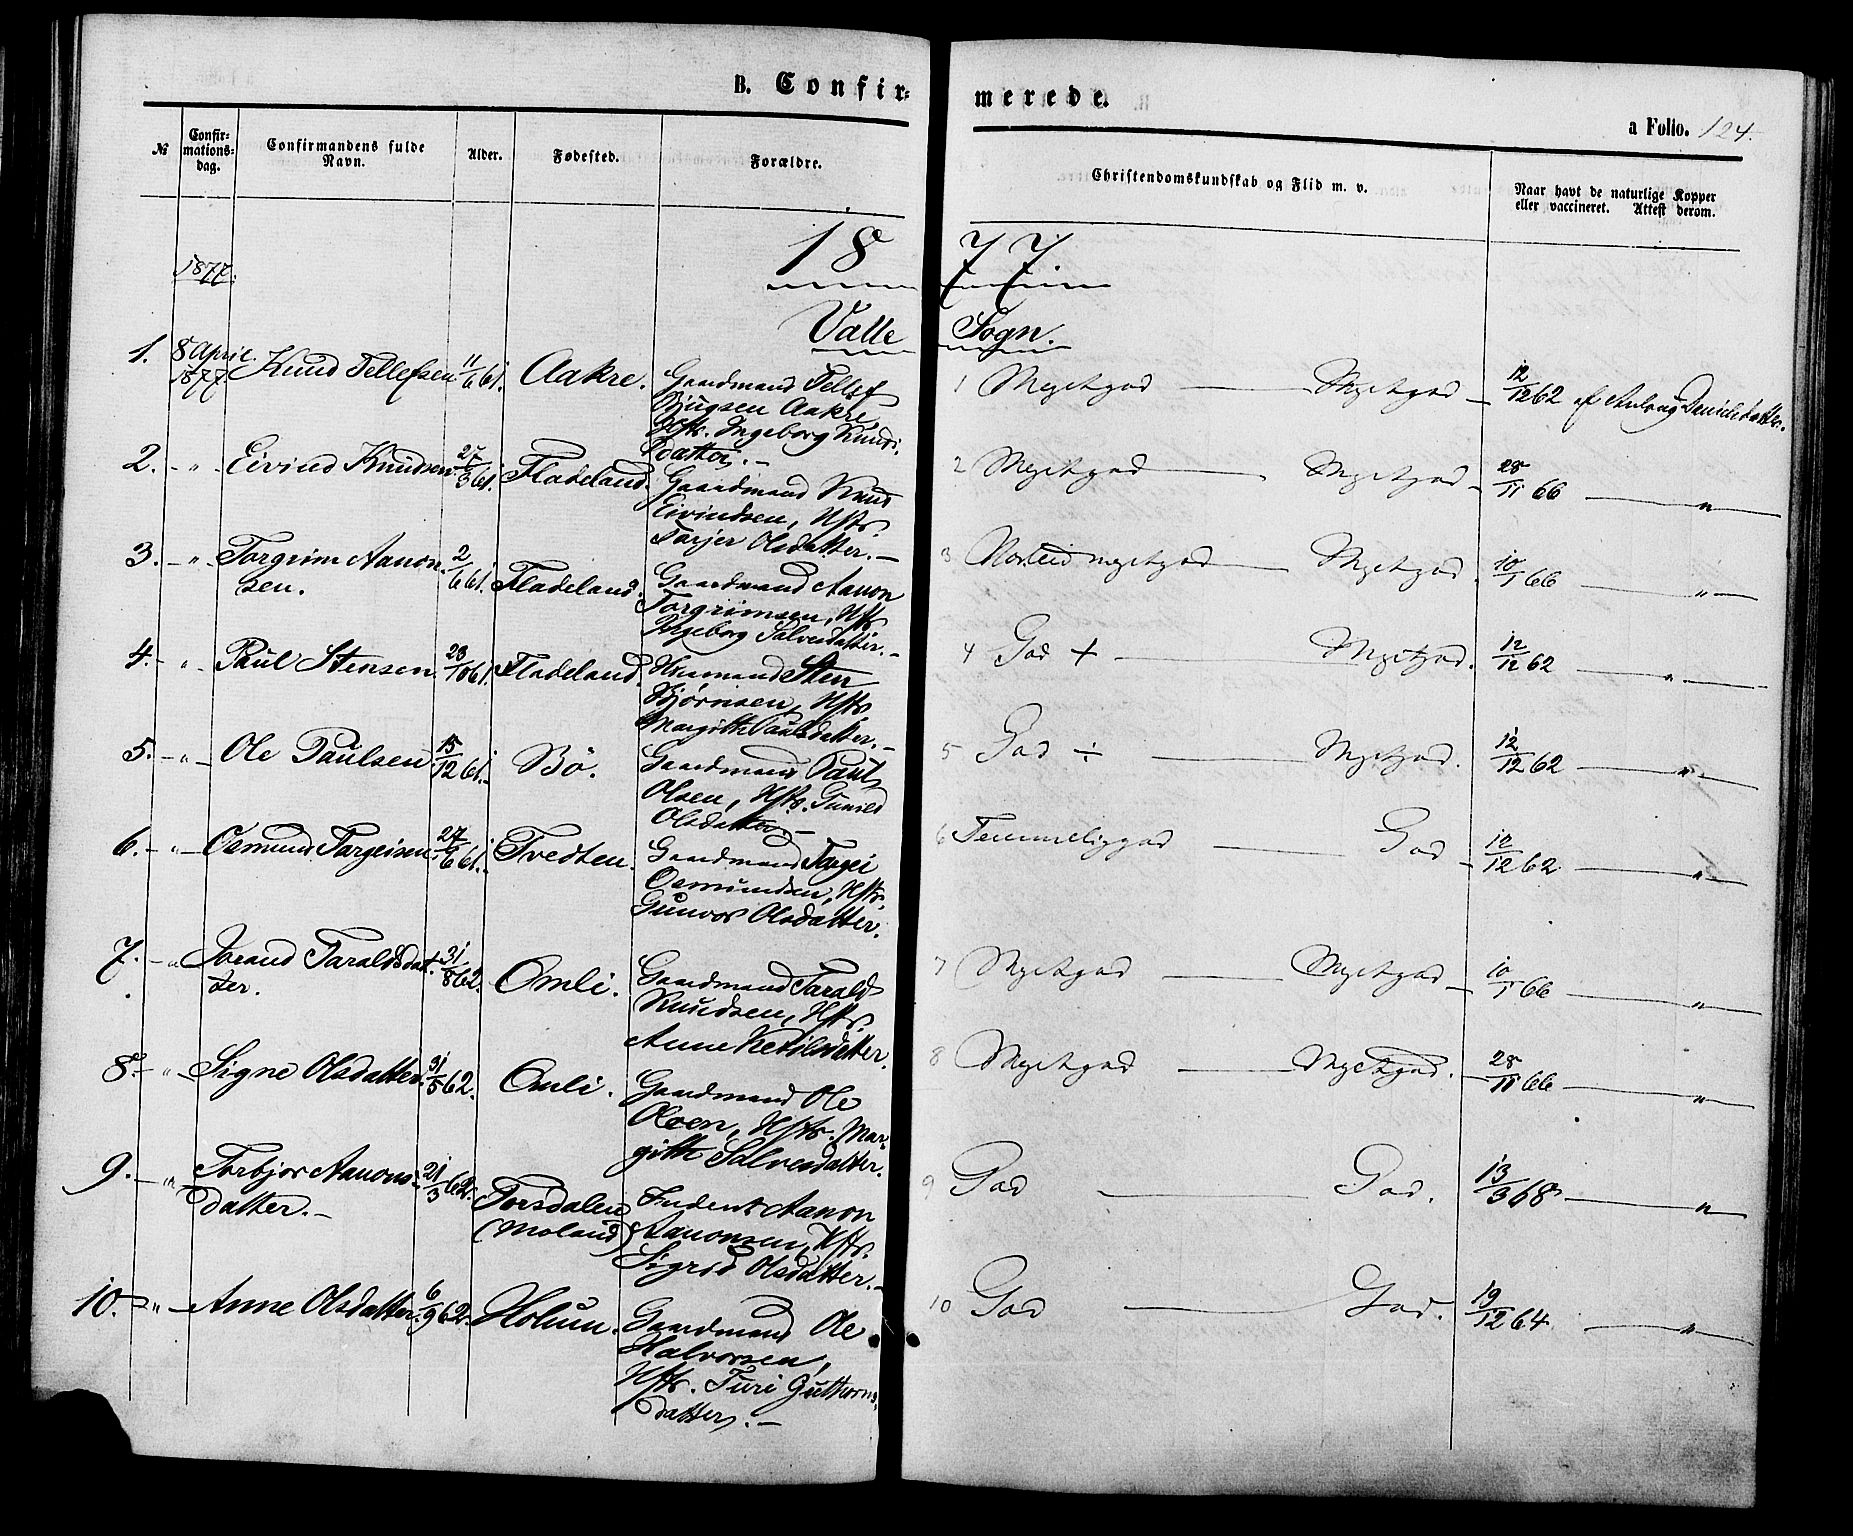 B. Confir-
merede.
a Folio. 124.
№
Confir-
mations-
dag.
Confirmandens fulde
Navn.
Alder.
Fødested.
Forældre.
Christendomskundskab og Flid m. v.
Naar havt de naturlige Kopper
eller vaccineret. Attest derom.
1877.
1877.
Valle Sogn.
1. 8 April 1877 Knud Tellefsen 11/6 61. Aakre. Gaardmand Tellef
Bjugsen Aakre
Hstr. Ingeborg Knuds
datter. –
1 Megetgod — Megetgod – 12/12 62 af Aulaug Danielsdatter.
2. – " – Eivind Knudsen 27/3 61. Fladeland. Gaardmand Knud
Eivindsen, Hstr.
Tarjer Olsdatter. –
2 Megetgod — Megetgod – 28/11 66 — "
3. – " – Torgrim Aanon-
sen. 2/6 61. Fladeland. Gaardmand Aanon
Torgrimsen, Hstr
Ingeborg Salvesdatter. –
3 Norleid megetgod — Megetgod. 10/1 66 — " –
4. – " – Paul Stensen 23/10 61. Fladeland. Huusmand Sten
Bjørnsen, Hstr
Margith Paulsdatter. –
4 God + — Megetgod. 12/12 62 — " —
5. – " – Ole Paulsen 15/12 61. Bö. Gaardmand Paul
Olsen, Hstr. Gunild
Olsdatter. –
5 God ÷ — Megetgod. 12/12 62 — " –
6. – " – Osmund Targeisen 27/6 61. Tvedten. Gaardmand Targei
Osmundsen, Hstr.
Gunvor Olsdatter.
6 Temmeliggod — God – 12/12 62 — " –
7. – " Jorand Taraldsdat-
ter. 31/8 62. Omli. Gaardmand Tarald
Knudsen, Hstr.
Anne Ketilsdatter.
7 Megetgod — Megetgod – 10/1 66 — "
8. – " – Signe Olsdatter 31/5 62. Omli. Gaardmand Ole
Olsen, Hstr. Mar-
gith Salvesdatter.
8 Megetgod — Megetgod. – 28/11 66 — "
9. – " Torbjor Aanons-
datter. – 21/3 62. Torsdalen
(Moland) Inderst Aanon
Aanonsen, Hstr.
Sigrid Olsdatter. –
9 God — God. 13/3 68 — "
10. – " – Anne Olsdatter. 6/9 62. Holum. Gaardmand Ole
Halvorsen,
Hstr. Turi Guttorms
datter. –
10 God — God. 19/12 64 — "